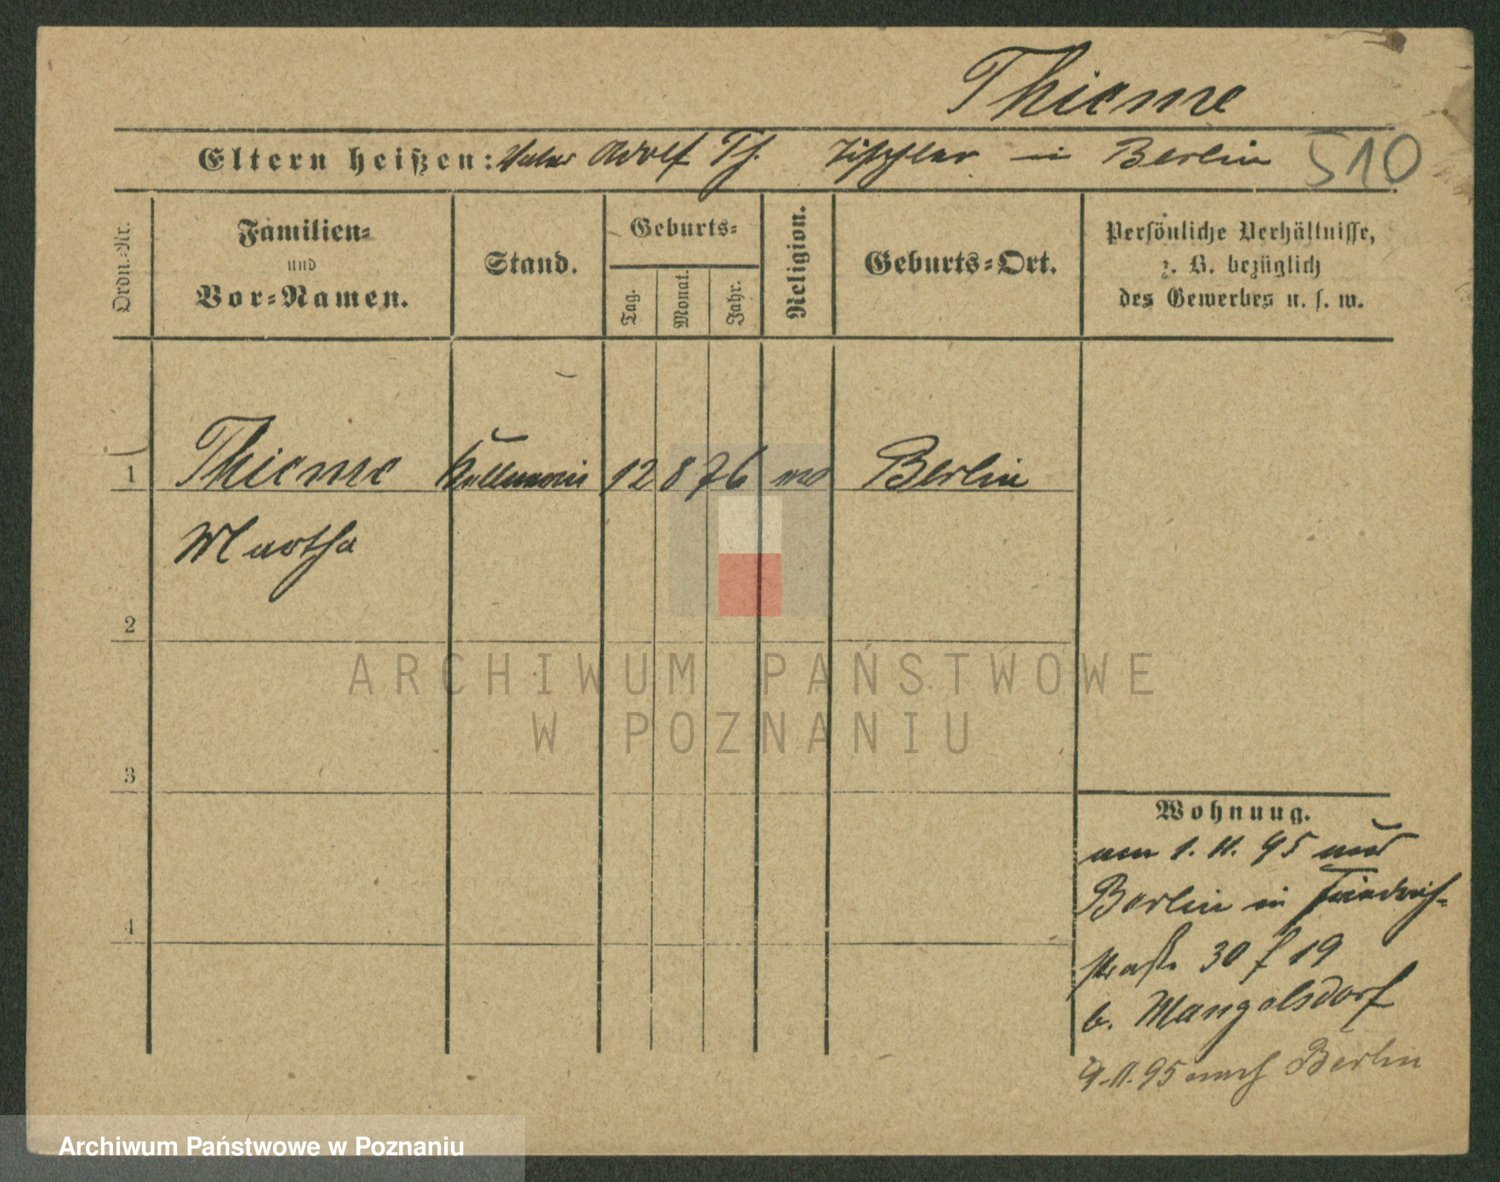 Thieme
Eltern heißen: Vater Adolf Th. Tischler in Berlin 510
Ordn.-Nr.
Familien-
und
Vor-Namen.
Stand.
Geburts-
Tag.
Monat.
Jahr.
Religion.
Geburts-Ort.
Persönliche Verhältnisse,
z. B. bezüglich
des Gewerbes u. s. w.
1 Thieme Kellnerin 12 8 76 Berlin
Martha
2
ARCHIWUM PAŃSTWOWE
W POZNANIU
3
Wohnung.
am 1. 11. 95 aus
Berlin in Friedrich-
straße 30 f 19
b. Mangelsdorf
4
9.11.95 nach Berlin
Archiwum Państwowe w Poznaniu